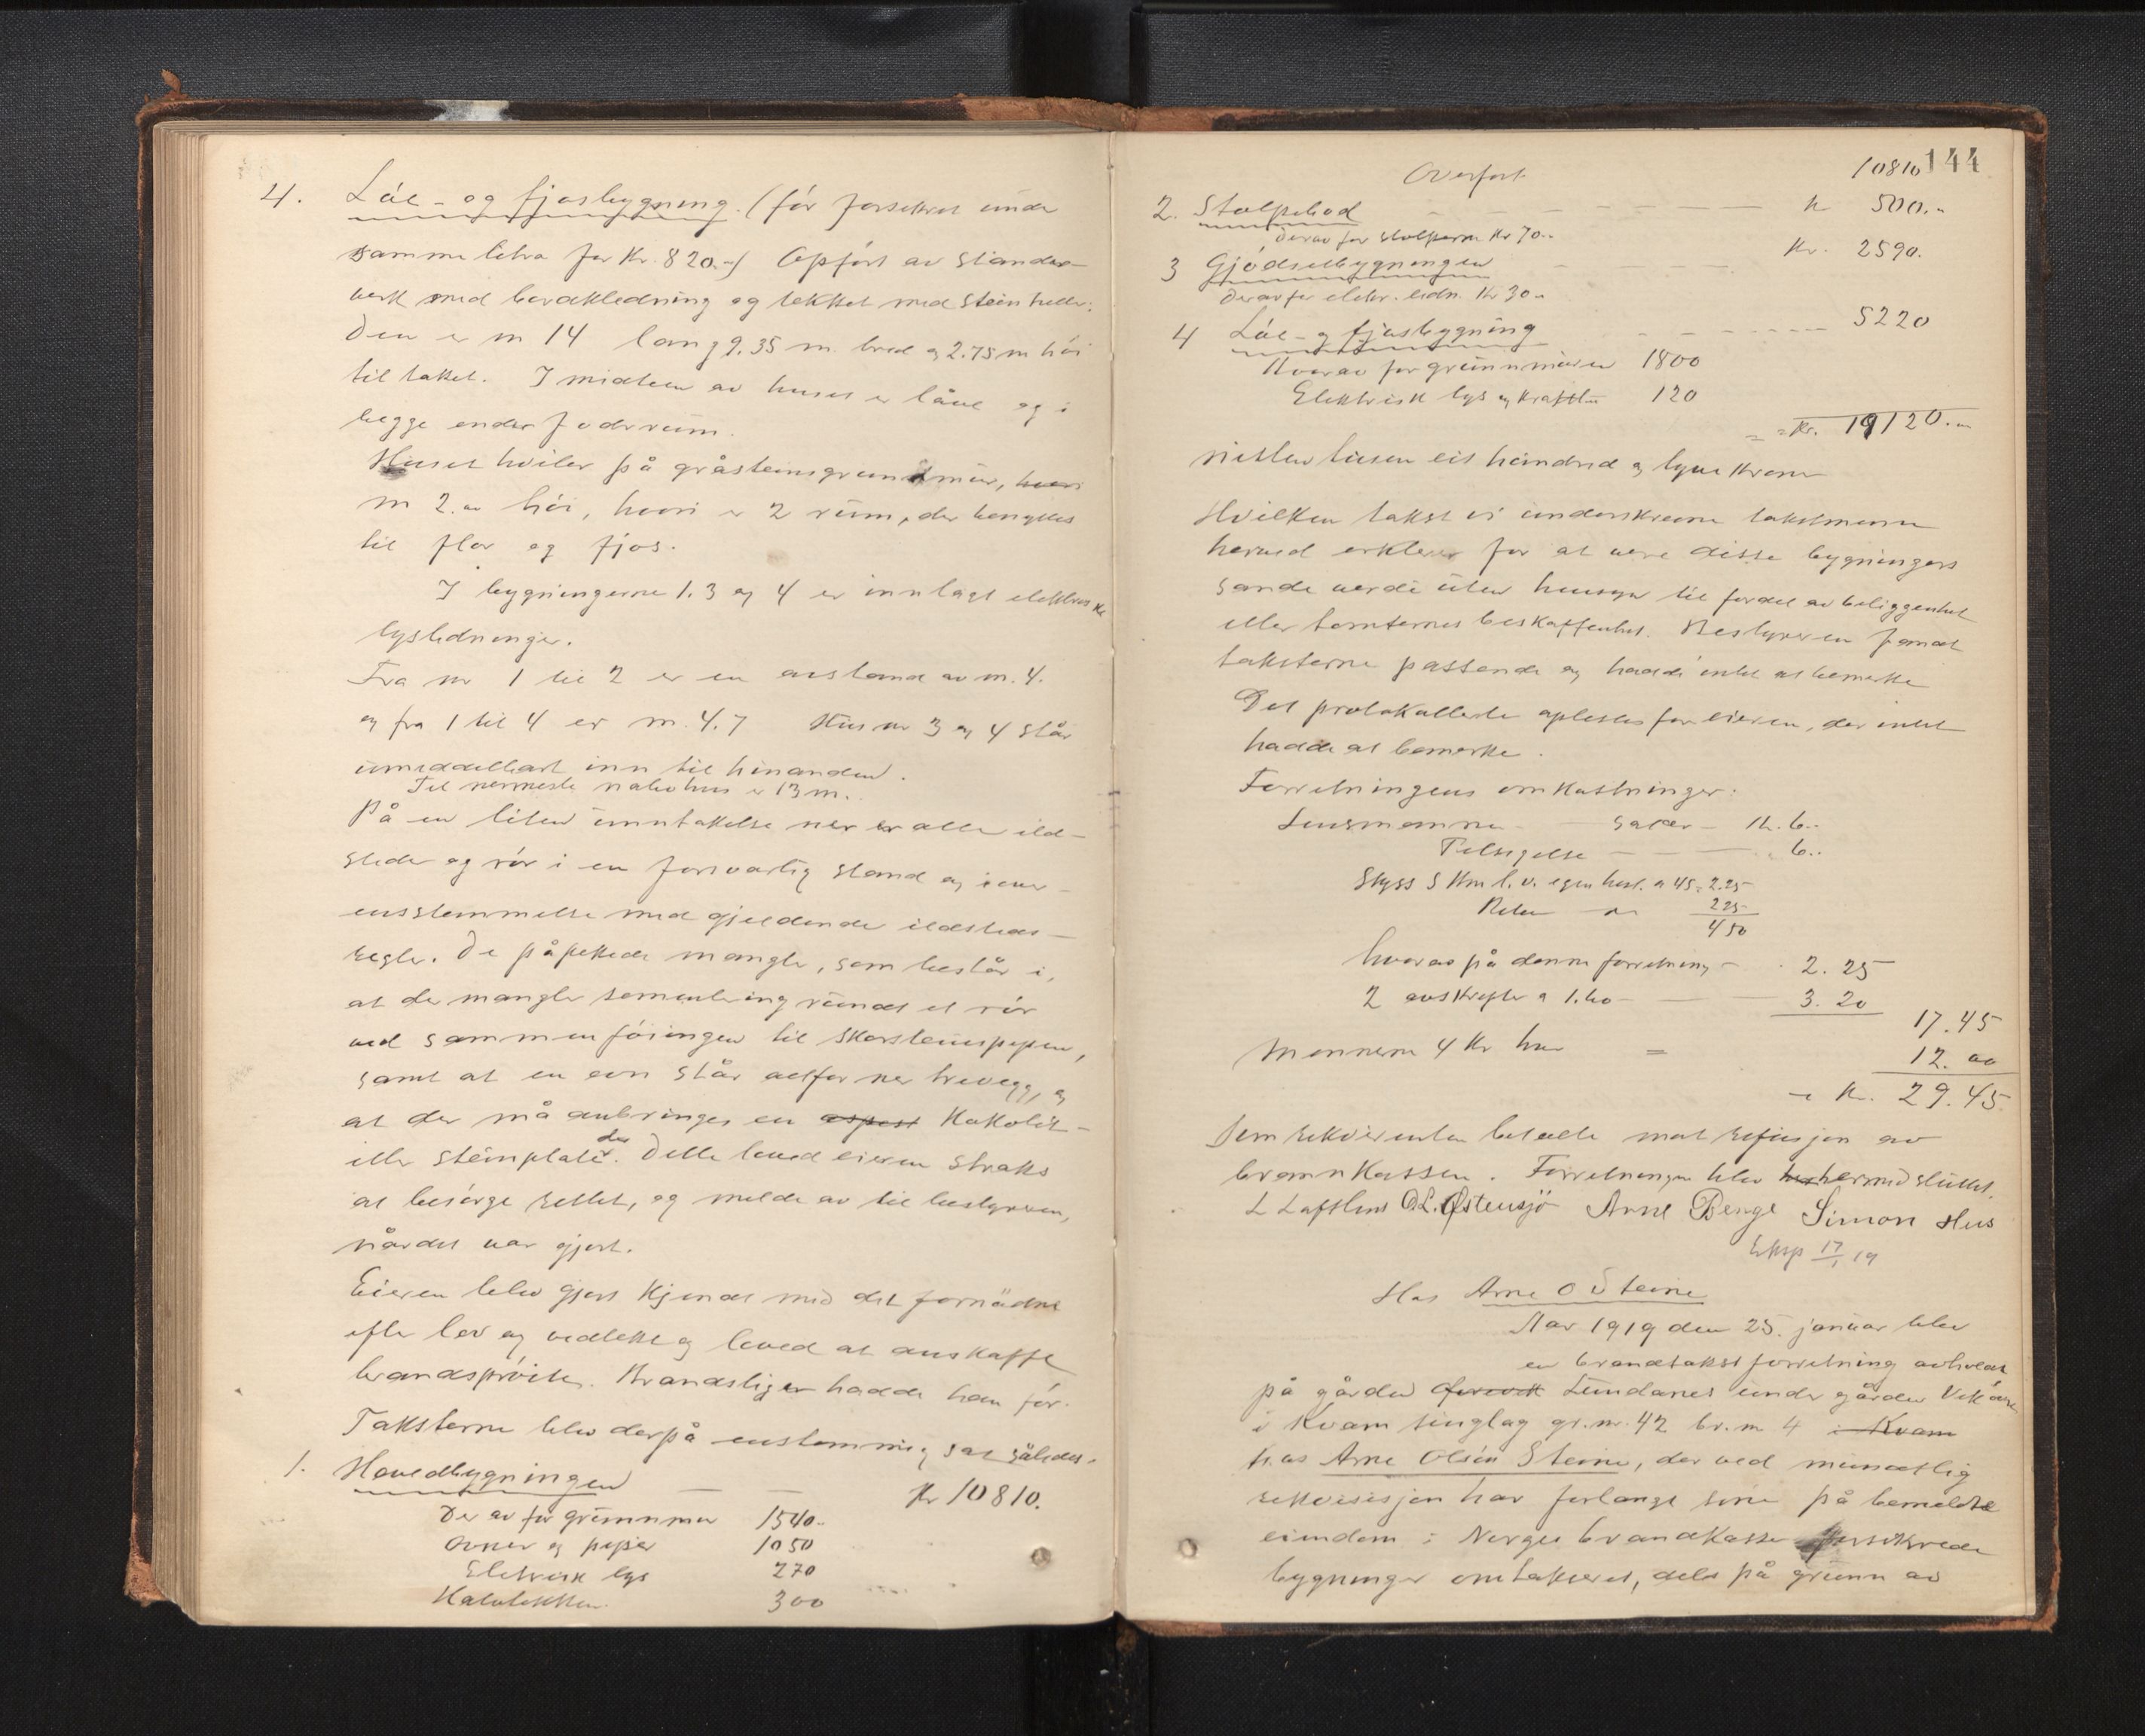 4. Lóe- og fjosbygning. (før forsikret under
samme litra for Kr. 820.-) Opført av stander-
verk med bordkledning og tekket med steinheller.
Den er m 14 lang 9.35 m bred og 2.75 m høi
til taket. I midten av huset er låve og i
begge ender foderrum.
Huset hviler på gråsteinsgrundmur, hvori
m 2.00 høi, hvori er 2 rum, der benyttes
til flor og fjos.
I bygningerne 1. 3 og 4 er innlagt elektriske
lysledninger.
Fra nr 1 til 2 er en avstand av m. 4.
og fra 1 til 4 er m. 4.7 Hus nr 3 og 4 står
umiddelbart inn til hinanden.
Til nermeste nabohus er 13 m.
På en liten unntakelse ner er alle ild-
steder og rør i en forsvarlig stand og i over-
ensstemmelse med gjeldende ildsteds-
regler. De påpekede mangler, som består i,
at der mangler sementering rundt et rør
ved sammenføiningen til skorsteinspipen,
samt at en ovn står altfor ner trevegg, og
at der må anbringes en aspest Kokolit-
eller steinplate der. Dette loved eieren straks
at besørge rettet, og melde av til bestyreren,
når det var gjort.
Eieren blev gjort kjendt med det fornødne
efter lov og vedtekt og loved at anskaffe
brandsprøite. Brandstiger hadde han før.
Taksterne blev derpå enstemmig sat således.
1. Hovedbygningen — — Kr 10810.
Der av for grunnmur 1540.-
Ovner og piper 1050
Eletrisk lys 270
300
144
Overført 10810
2. Stolpebod — — — — — kr 500.-
Derav for stolperne Kr 70.-
3 Gjødselbygningen — — — — Kr. 2590.
Derav for elektr. ledn. Kr 30.-
4 Lóe- og fjosbygning - - - - - - 5220
Hvorav for grunnmuren 1800
Elektrisk lys og kraftl. 120
= = Kr. 19120.-
nitten tusen eit hundred og tyve kroner
Hvilken takst vi underskrevne takstmenn
herved erklerer for at være disse bygningers
sande verdi uten hensyn til fordel av beliggenhet
eller tomternes beskaffenhet. Bestyreren fandt
taksterne passende og hadde intet at bemerke
Det protokollerte oplestes for eieren, der intet
hadde at bemerke.
Forretningens omkostninger:
Lensmannen saler — Kr. 6.-
Tilsigelse — — — 6.-
Skyss 5 Km l. v. egen hest. a 45 = 2.25
Retur 2.25
4 50
hvorav på denne forretning — 2. 25
2 avskrifter a 1.60 — — 3. 20
17.45
Mennerne 4 Kr hver = 12. 00
Kr. 29.45
Som rekvirenten betalte mot refusjon av
brannkassen. Forretningen blev hermed sluttet.
L Lofthus O.L. Østensjö Arne Berge Simon Hus
Eksp 17/1 19
Hos Arne O Steine
Aar 1919 den 25. januar blev
en brandtakst forretning avholdt
på gården Lundanes under gården Vik øvre
i Kvam tinglag gr. nr. 42 br. nr 4 i Kvam
hos Arne Olsen Steine, der ved mundtlig
rekvisisjon har forlangt sine på bemeldte
eiendom i Norges brandkasse forsikrede
bygninger omtakseret, dels på grunn av